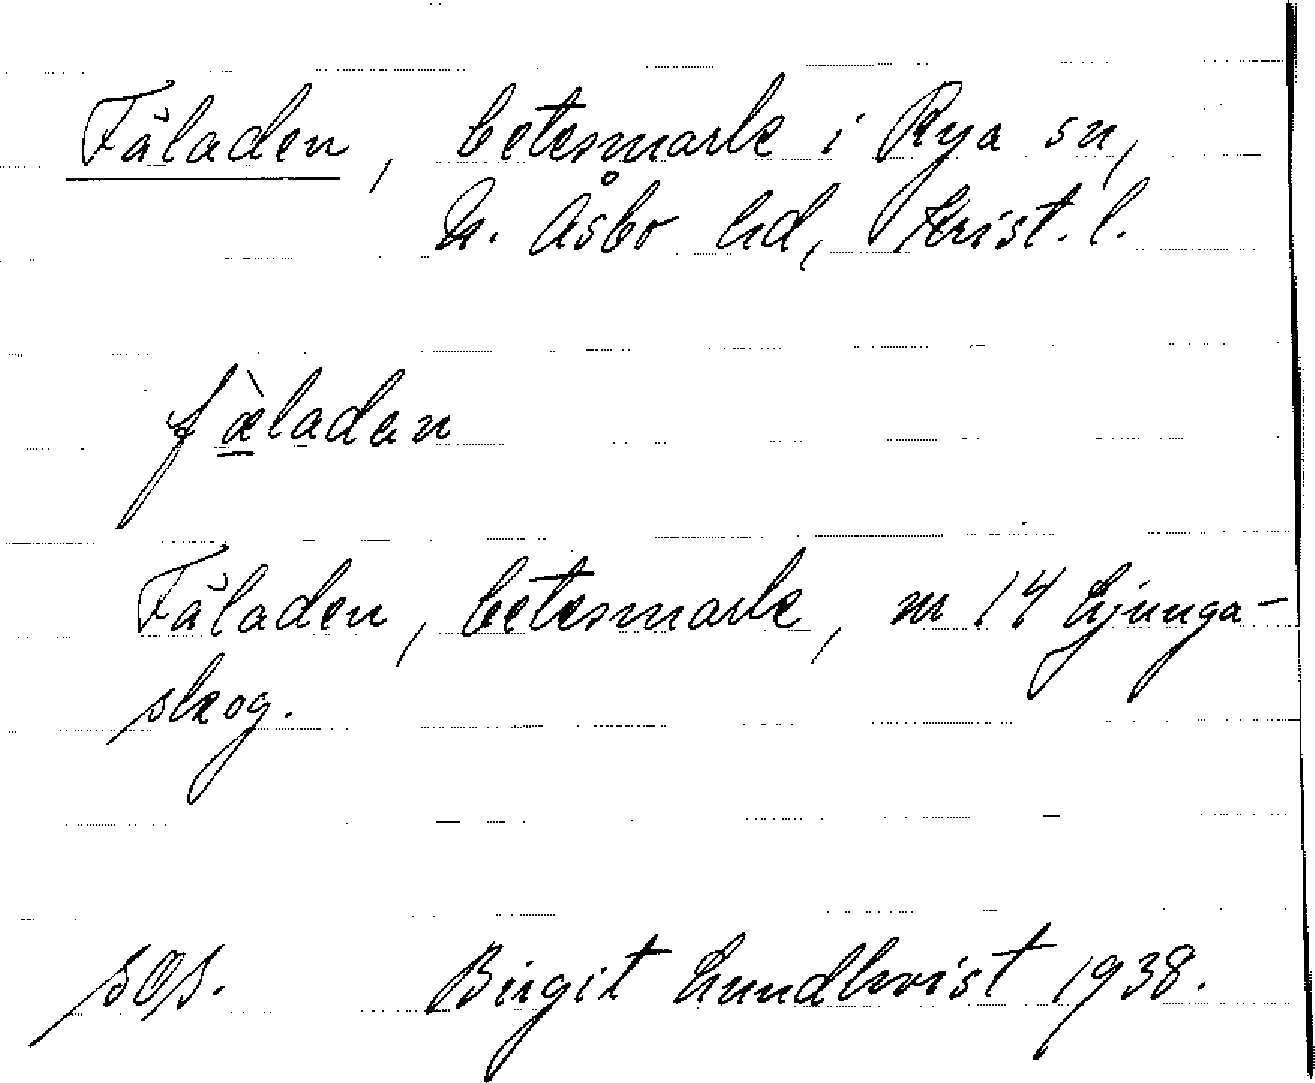 Fäladen, betesmark i Rya sn,
N. Åsbo hd, Krist. l.
fæ̀ladan
Fäladen, betesmark, nr 14 Ljunga-
skog.
Birgit Lundkvist 1938.